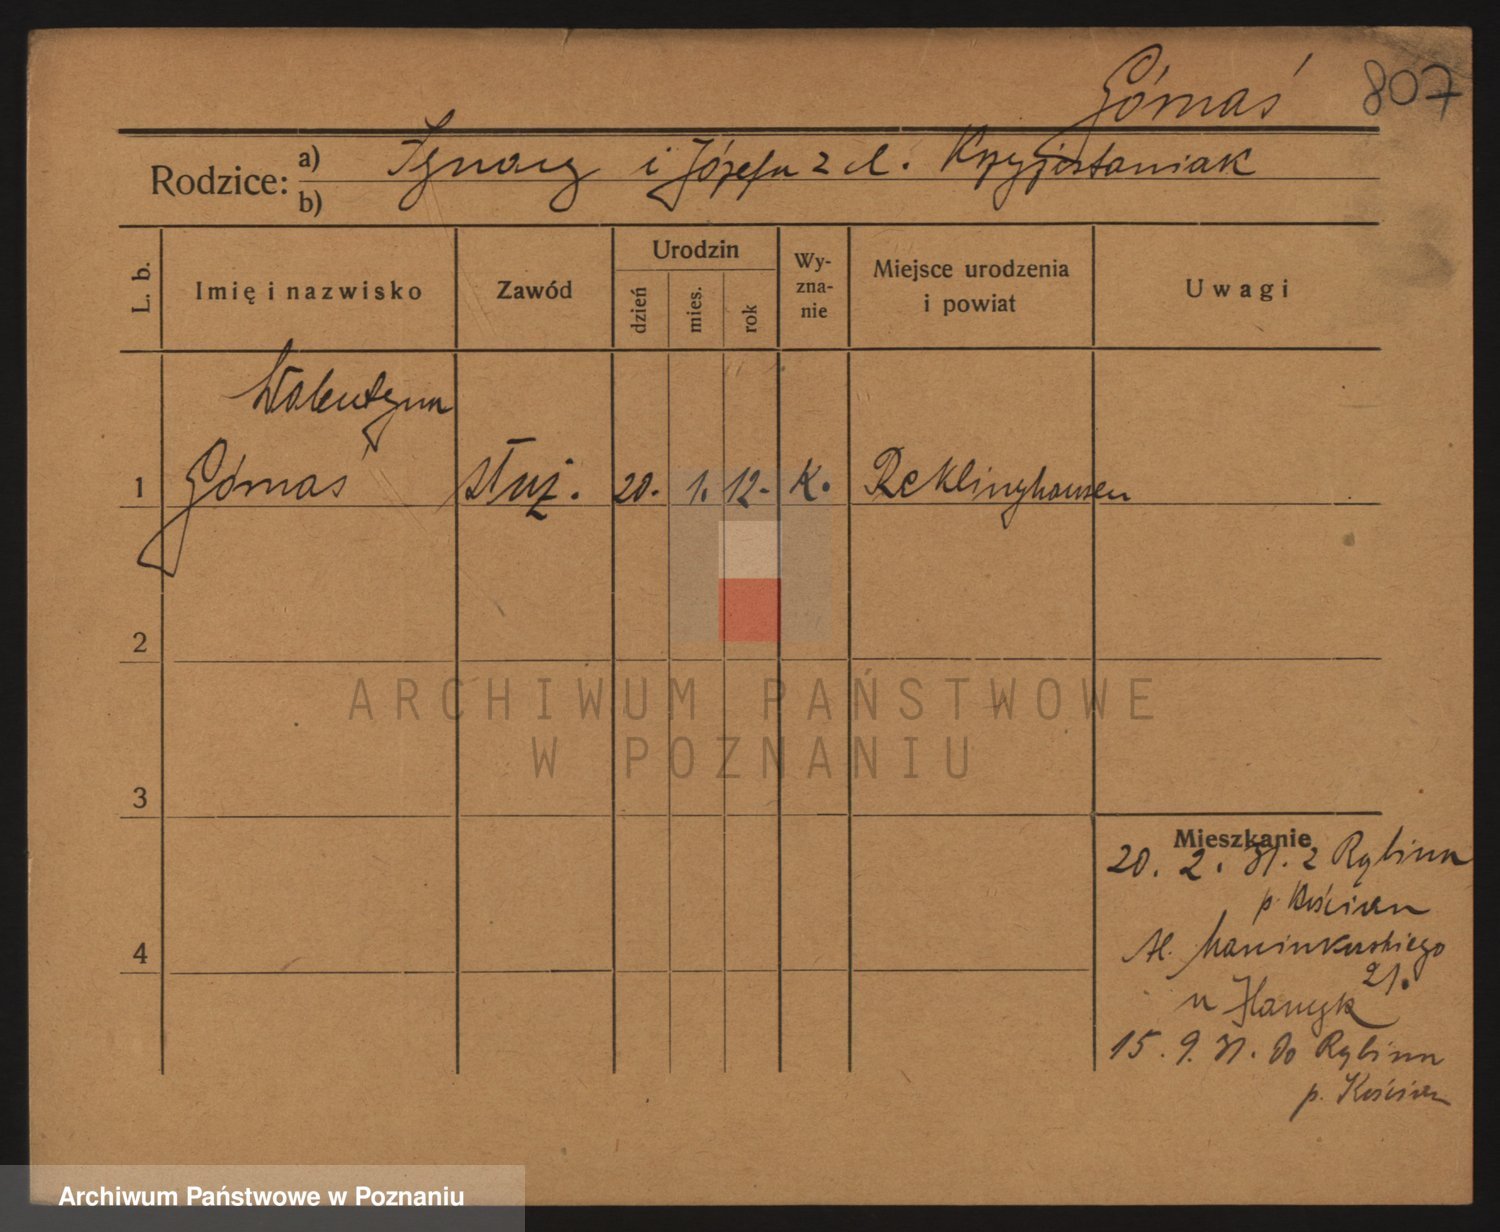 Górnaś 807
Rodzice: a) Ignacy i Józefa z d. Krzyżostaniak
b)
L. b. Imię i nazwisko Zawód Urodzin dzień mies. rok Wy-zna-nie Miejsce urodzenia i powiat Uwagi
Walentyna
1 Górnaś służ. 20. 1. 12. K. Reklinghausen
2
3
Mieszkanie
20. 2. 31. z Rybina
p. Kościan
4 Al. Marcinkowskiego
21.
u
15. 9. 31. do Rybina
p. Kościan
ARCHIWUM PAŃSTWOWE
W POZNANIU
Archiwum Państwowe w Poznaniu